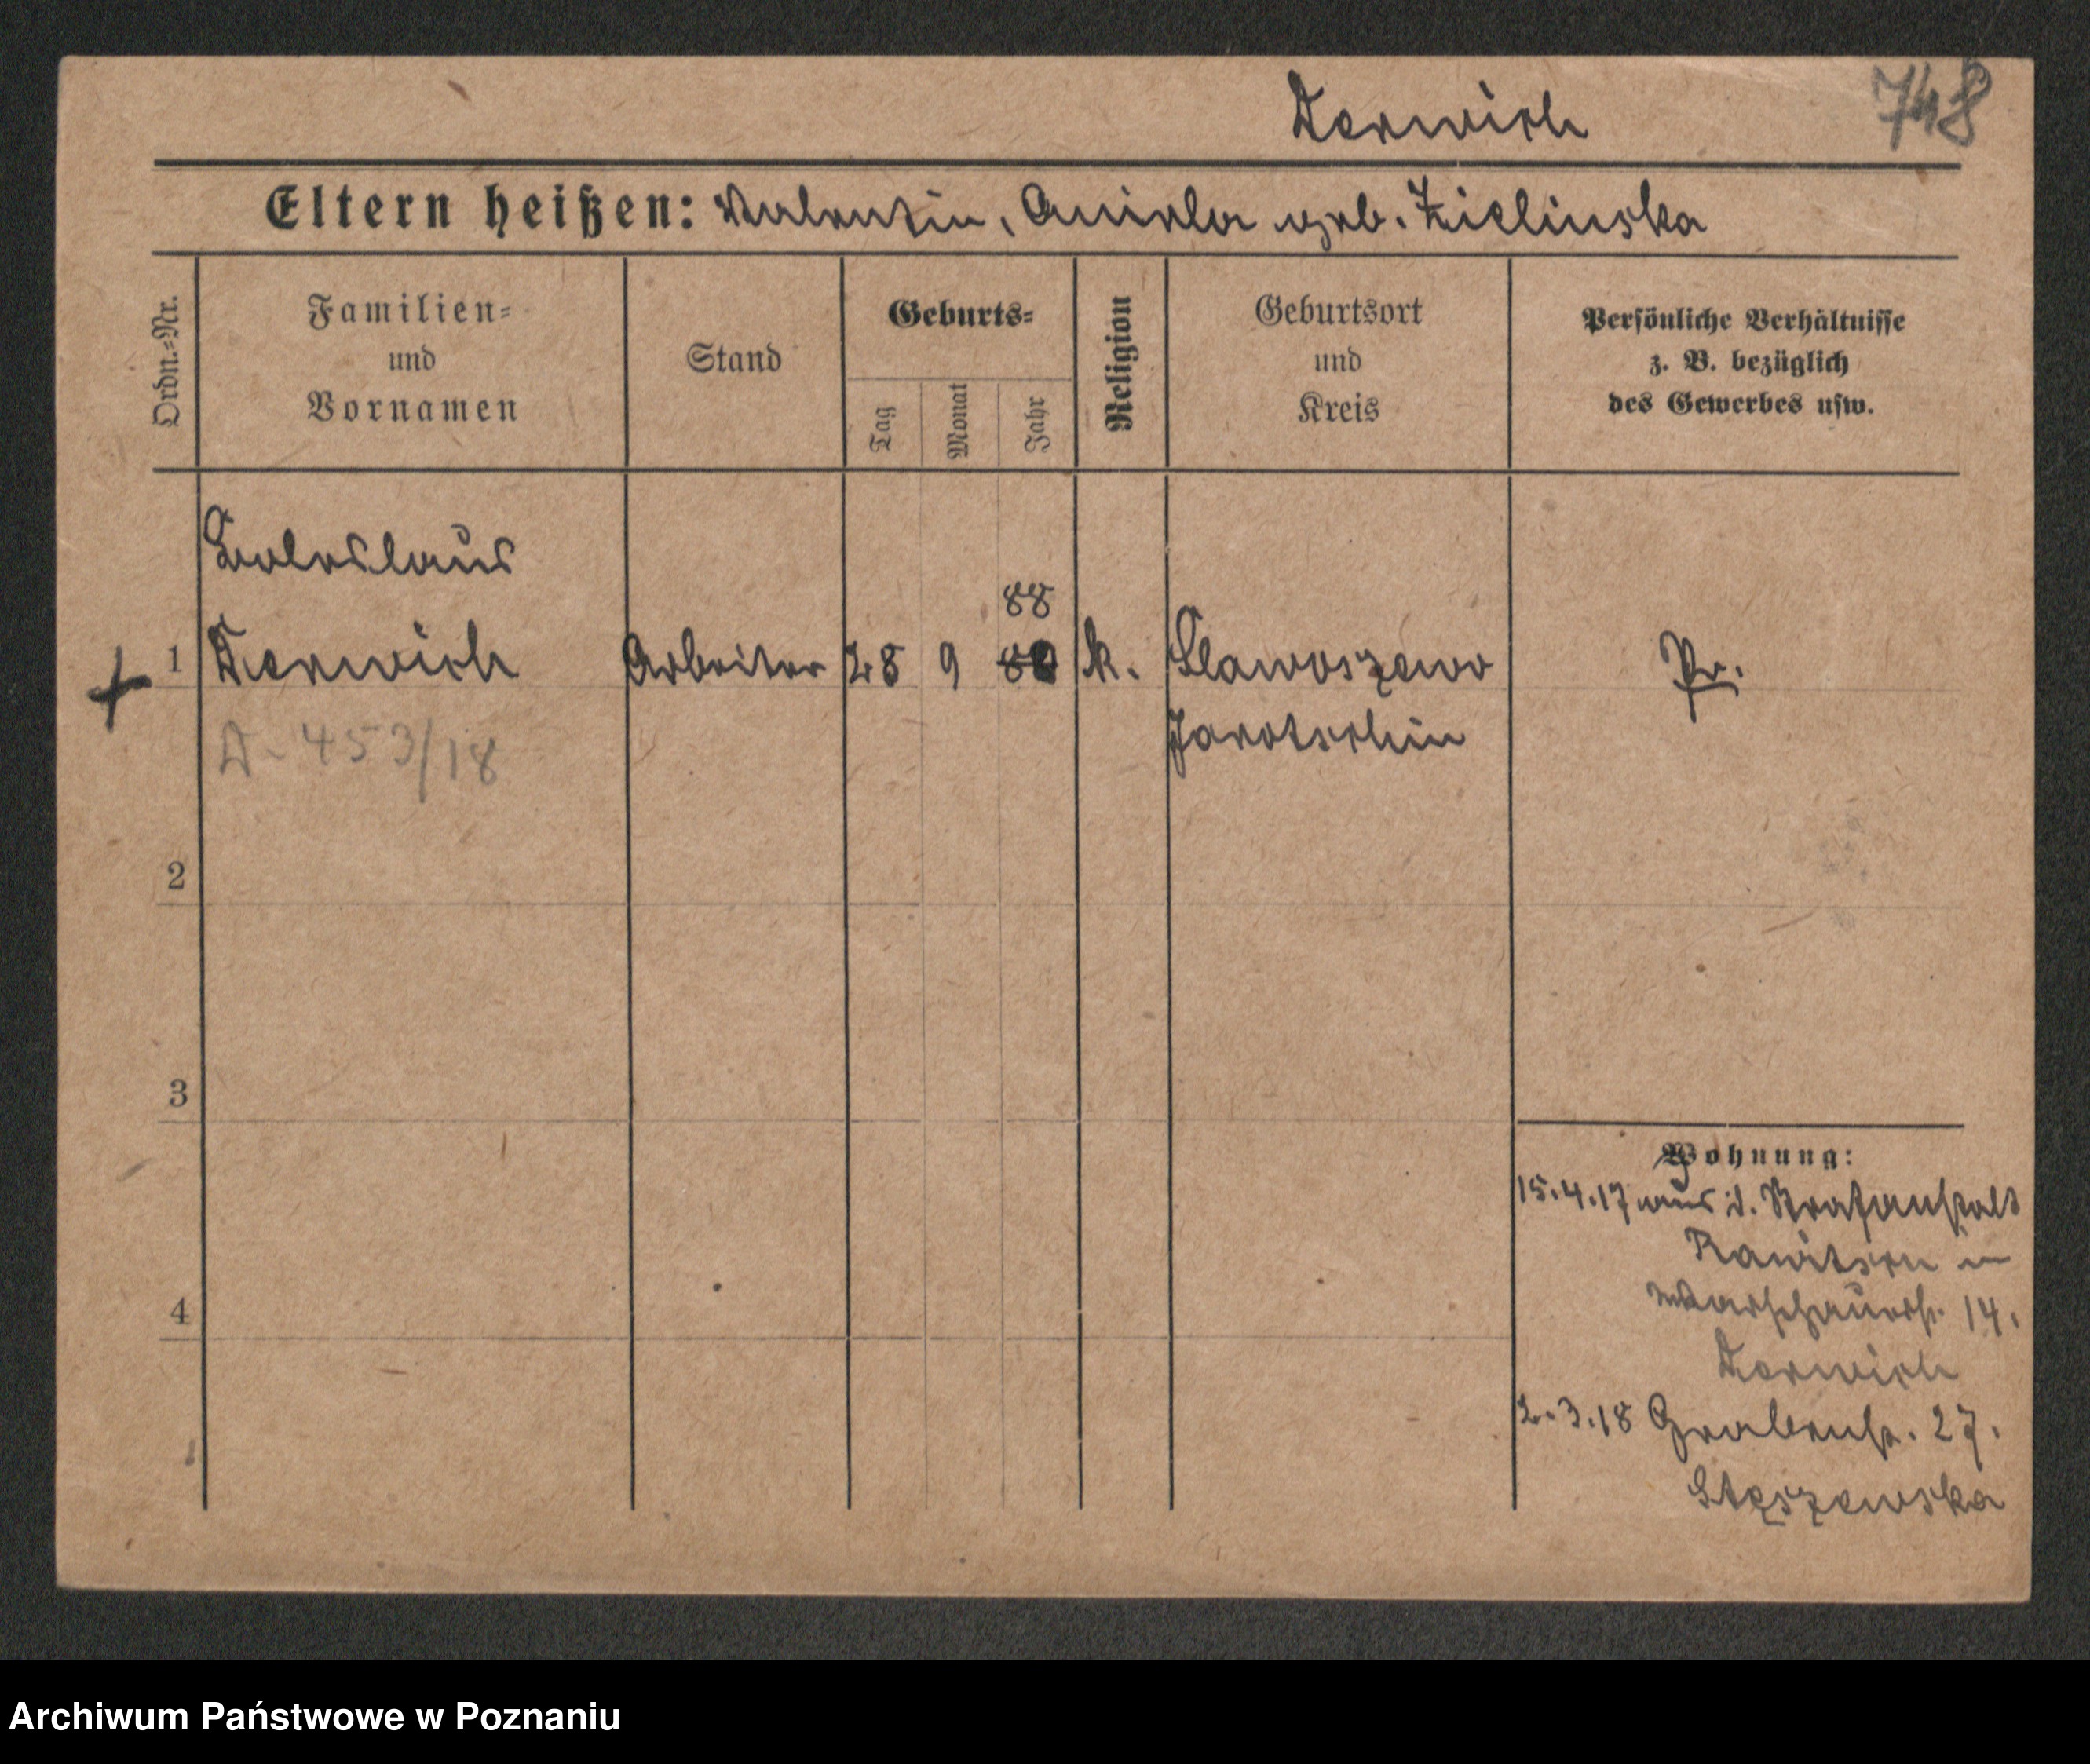 Derwich
748
Eltern heißen: Valentin, Aniela geb. Zielinska
Ordn.-Nr.
Familien-
und
Vornamen
Stand
Geburts-
Tag
Monat
Jahr
Religion
Geburtsort
und
Kreis
Persönliche Verhältnisse
z. B. bezüglich
des Gewerbes usw.
Boleslaus
88
1 Derwich Arbeiter 28 9 80 k. Slawoszewo Pr.
Jarotschin
A-453/18
2
3
4
Wohnung:
15.4.17 aus d. Strafanstalt
Rawitsch in
Warschauerstr. 14.
Derwich
2.3.18 Grabenstr. 27.
Stęszewska
Archiwum Państwowe w Poznaniu